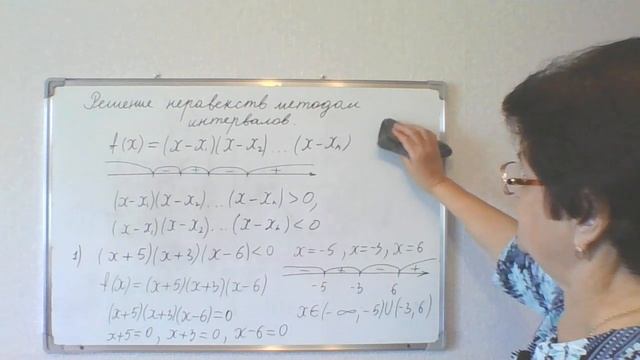 Решение неравенств методом
интервалов.
f(x) = (x-x₁)(x-x₂)...(x-xₙ)
- + - +
(x-x₁)(x-x₂)...(x-xₙ)>0,
(x-x₁)(x-x₂)...(x-xₙ)<0
1) (x+5)(x+3)(x-6)<0
f(x)=(x+5)(x+3)(x-6)
(x+5)(x+3)(x-6)=0
x+5=0, x+3=0, x-6=0
x=-5, x=-3, x=6
- + - +
-5 -3 6
x∈(-∞,-5)∪(-3,6)